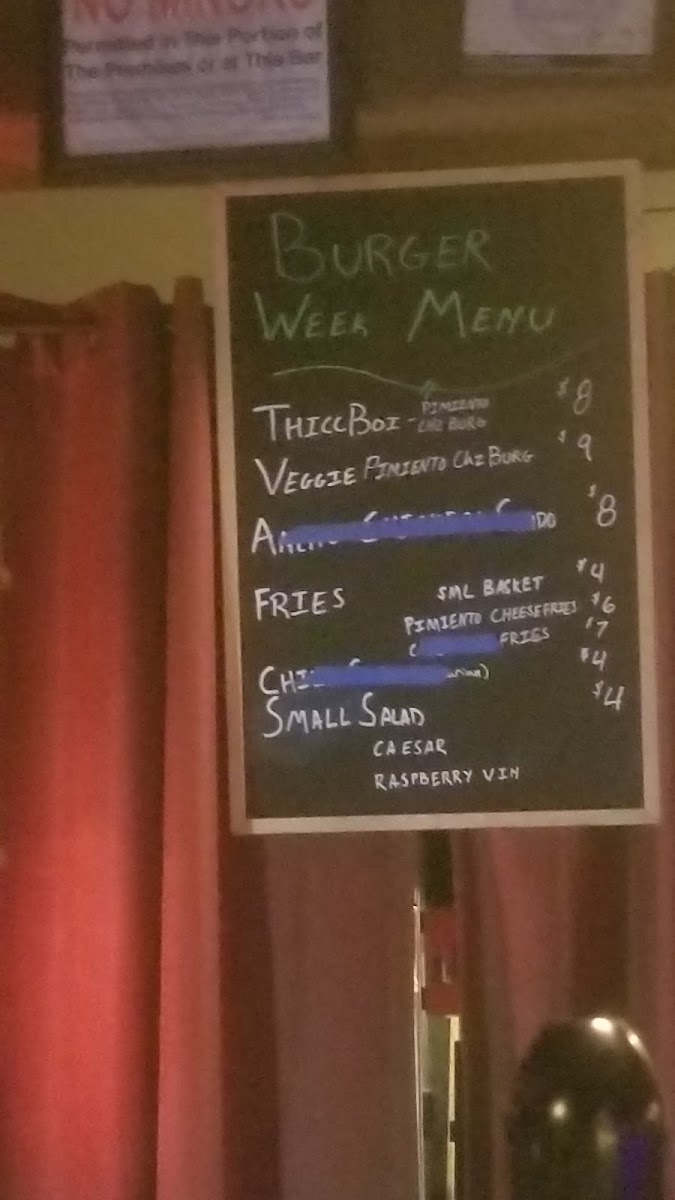 NO MINORS
Permitted in This Portion of
The Premises or at This Bar
BURGER
WEEK MENU
THICCBOI - PIMIENTO CHZ BURG $8
VEGGIE PIMIENTO CHZ BURG $9
$8
FRIES SML BASKET $4
PIMIENTO CHEESE FRIES $6
FRIES $7
$4
SMALL SALAD $4
CAESAR
RASPBERRY VIN